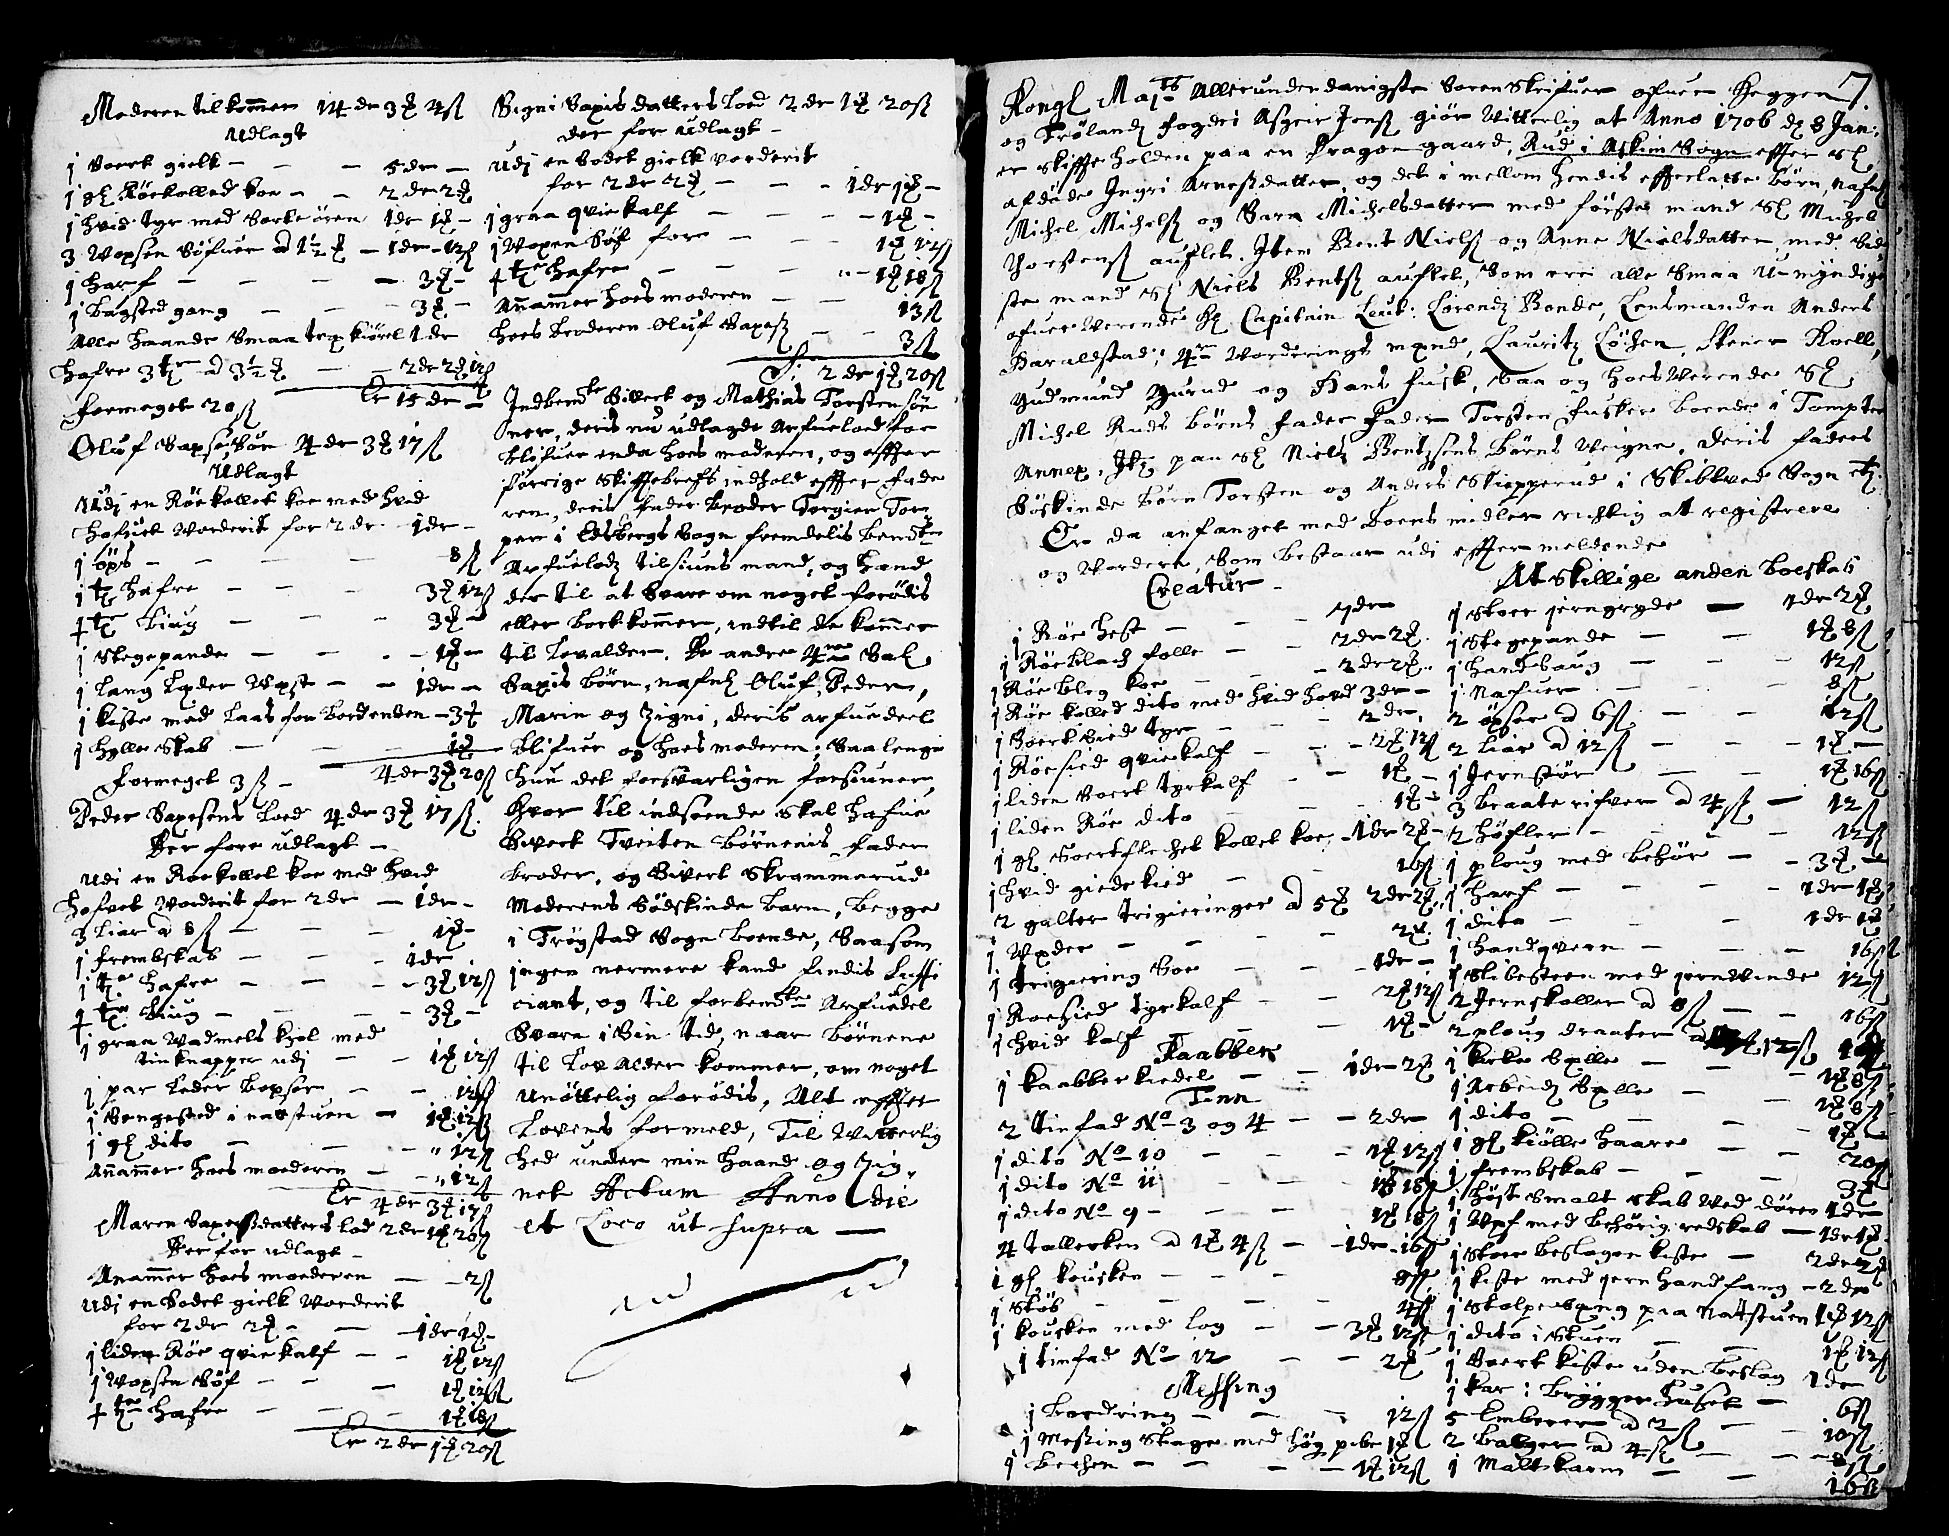 Moderen tilkommer 14 dr 3 ₰ 4 ß
Udlagt
1 Sort gielt — 5 dr —
1 gl. Röekolled koe — 2 dr 2 ₰
1 hvid tyr med Sorte ören 1 dr 1 ₰ —
3 Voxsen Söfuer a 1½ ₰ — 1 dr — 12 ß
1 harf — 3 ₰ —
1 Bagsted gang — 3 ₰ —
Alle haande Smaa trækiörel 1 dr
Hafre 3 tr a 3½ ₰ — 2 dr 2 ₰ 12 ß
Er 15 dr —
formeget 20 ß
Oluf Saxesön 4 dr 3 ₰ 17 ß
Udlagt
Udj en Röekollet koe med hvid
hofuet Vorderit for 2 dr — 1 dr —
1 öxs — 8 ß
1 tr hafre — 3 ₰ 12 ß
4 tr Biug — 3 ₰ —
1 Stegepande — 1 ₰ —
1 Lang Læder Vest — 1 dr —
1 kiste med Laas for Bordenden — 3 ₰
1 hylle Skab — 1 ₰
4 dr 3 ₰ 20 ß
Formeget 3 ß —
Peder Saxesöns Lod 4 dr 3 ₰ 17 ß.
Der fore udlagt —
Udi en Roekollet koe med hvid
hofvet Vorderit for 2 dr — 1 dr —
3 Liar a 8 ß — 1 ₰ —
1 frembskab — 1 dr
1 tr hafre — 3 ₰ 12 ß
4 tr Biug — 3 ₰ —
1 graa Vadmels kiol med
tinknapper udj — 1 ₰ 12 ß
1 par Leder Boxser — 12 ß
1 Sengested i nattstuen — 1 ₰ 12 ß
1 gl dito — 12 ß
Annammer hoes moederen — 12 ß
Er 4 dr 3 ₰ 17 ß
Maren Saxesdatters lod 2 dr 1 ₰ 20 ß
Der for udlagt —
Annammer hoes moederen — 2 ß
Udj en Sodet gielk Vorderit
for 2 dr 2 ₰ — 1 dr 1 ₰ —
1 liden Röe qviekalf — 1 ₰ 12 ß
1 Voxsen Söf — 1 ₰ 12 ß
4 tr hafre — 1 ₰ 18 ß
Er 2 dr 1 ₰ 20 ß
Signi Saxisdatters Lod 2 dr 1 ₰ 20 ß
der for udlagt —
Udj en Sodet gielk vorderit
for 2 dr 2 ₰ — 1 dr 1 ₰ —
1 graa qviekalf — 1 ₰ —
1 Voxen Söf fore — 1 ₰ 12 ß
4 tr hafre — 1 ₰ 18 ß
Annammer hoes moderen — 13 ß
hoes Broderen Oluf Saxesß — 3 ß
S: 2 dr 1 ₰ 20 ß
Indbemte Sivert og Mathias Torstensön
ner, deris nu udlagde Arfuelod for
blifuer enda hoes moderen, og effter
forrige Skifftebrefs indhold effter fade
ren, deris fader broder Torgier Tor
per i Edsbergs Sogn fremdelis bemte
Arfuelodz tilsiuns mand, og haand
der til at Svare om noget forödis
eller bortkommer, indtil de kommer
til Lovalder. De andre 4re Sal.
Saxis börn, nafnl Oluf, Peder,
Marin og Zigni, deris arfuedeel
blifuer og hoes moderen, Saalenge
hun det forsvarligen forsiuner,
hvor til indseende skal hafue
Sivert Tveiten Börnenis fader
broder, og Sivert Skrammerud
Moderens Södskinde barn, begge
i Trögstad Sogn boende, Saasom
ingen nermere kand findis Suffi
ciant, og til forbemte Arfuedel
Svare i Sin tid, naar Börnene
til Lov alder kommer, om noget
unöttelig forödis, Alt effter
Lovens formeld, Til Vitterlig
hed under min haand og Zig
net Actum Anno die
et Loco ut supra —
7.
Kongl Mayts Allerunderdanigste Sorenskrifuer ofuer Heggen
og Frölandz fogdri Asgier Jensß giör Vitterlig at Anno 1706 dz 8 Jan:
er skiffte holden paa en Dragon gaard, Rud i Askim Sogn effter Sl
afdöde Ingri Arnesdatter, og det i mellom hendis effterlatte börn, nafnl
Michel Michelsß og Sara Michelsdatter med förste mand Sl Michel
Thorstensß aufled. Item Bent Nielsß og Anne Nielsdatter, med Sid
ste mand Sl Niels Bentsß auflet, Som erei alle Smaa Umyndige
ofuerverende Hr Capitain Leut: Lorendz Bonde, Lensmanden Anders
Haraldstad, 4re Vorderings mænd, Lauritz Löchen, Stener Koell,
Gudmund Gurud og Hans fusk, Saa og hoes Verende Sl
Michel Ruds börns Fader fader Torsten fusker boende i Tompter
Annex, Itz paa Sl Niels Bentzsens Börns Veigne, deris faders
Söskinde börn Torsten og Anders Skiepperud i Skibtved Sogn etz
Er da anfanget med Boens midler richtig at registrere
og Vordere, Som bestaar udi effter meldende
Creatur —
1 Röe hest — 7 dr
1 Röeblach folle — 2 dr 2 ₰.
1 Röe bleg koe — 2 dr 2 ₰
1 Röe kolled dito med hvid hoed 3 dr —
1 Sort Sied tyr — 2 dr.
1 Röesied qviekalf — 2 ₰ 12 ß
1 liden Sort tyrkalf — 1 ₰ —
1 liden Röe dito — 1 ₰ —
1 gl Sortflechet kollet koe — 1 dr 2 ₰ —
1 hvid giedekied — 16 ß
2 galter trigieringer a 5 ₰ 2 dr 2 ₰
1 Væder — 2 ₰.
1 trigiering Soe — 1 dr —
1 Roesied tyrkalf — 2 ₰ 12 ß
1 hvid kalf — 1 ₰ —
Kaabber
1 kaabber kiedel — 1 dr 2 ₰
Tinn
2 tinfad No 3 og 4 — 2 dr —
1 dito No 10 — 1 ₰ 12 ß
1 dito No 11 — 1 ₰ 18 ß
1 dito No 9 — 1 ₰ 18 ß
4 Tallerken a 1 ₰ 4 ß — 1 dr — 16 ß
1 gl kousken — 8 ß
1 Stöb — 4 ß
1 kousken med log — 3 ₰ 12 ß
1 tinfad No 12 — 2 ₰
Messing
1 Bordring — 12 ß
1 Messing Stage med höy pibe 1 ₰
1 Bechen — 1 ₰ 12 ß
Atskillige anden boeskab
1 Stoer jerngryde — 1 dr 2 ₰
1 Stegepande — 1 ₰ 8 ß
1 handsaug — 12 ß
1 Nafuer — 8 ß
2 öxser a 6 ß — 12 ß
2 Liar a 12 ß — 1 ₰ —
1 Jernstör — 1 ₰ 16 ß
3 Braaterifver a 4 ß — 12 ß
2 höfler — 12 ß
1 ploug med behör — 3 ₰ —
1 harf — 1 dr 1 ₰
1 dito — 1 dr 1 ₰
1 handqvern — 16 ß
1 Slibesteen med jernvinde 12 ß
2 Jernskoller a 8 ß — 16 ß
2 ploug draatter a 12 ß 1 ₰
1 kirke Sælle —
1 Arbeidz Sælle — 1 ₰ 8 ß
1 dito — 1 ₰ 8 ß
1 gl kiölle haare — 1 ₰
1 frembskab — 20 ß
1 höyt Smalt skab Ved dören 3 ₰
1 Vef med behörig redskab — 1 dr 1 ₰
1 Stoer beslagen kiste — 2 dr 2 ₰
1 kiste med jern handfang — 2 dr
1 Stolpe Seng paa Nattstuen 1 ₰ 12 ß
1 dito i Stuen — 1 ₰ 12 ß
1 Sort kiste uden beslag 1 dr
1 kar i Brygger huset — 6 ß
5 Emberer a 2 ß — 10 ß
2 Balger a 4 ß — 8 ß
1 Maltkarm — 16 ß